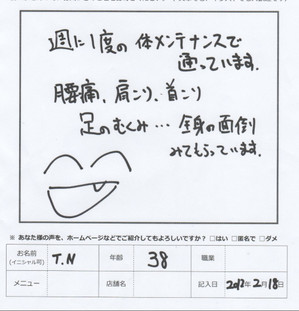 週に1度の体メンテナンスで
通っています.
腰痛、肩こり、首こり
足のむくみ… 全身の面倒
みてもらっています.
※ あなた様の声を、ホームページなどでご紹介してもよろしいですか? □はい □匿名で □ダメ
お名前 (イニシャル可) T.N 年齢 38 職業
メニュー 店舗名 記入日 2012年2月18日